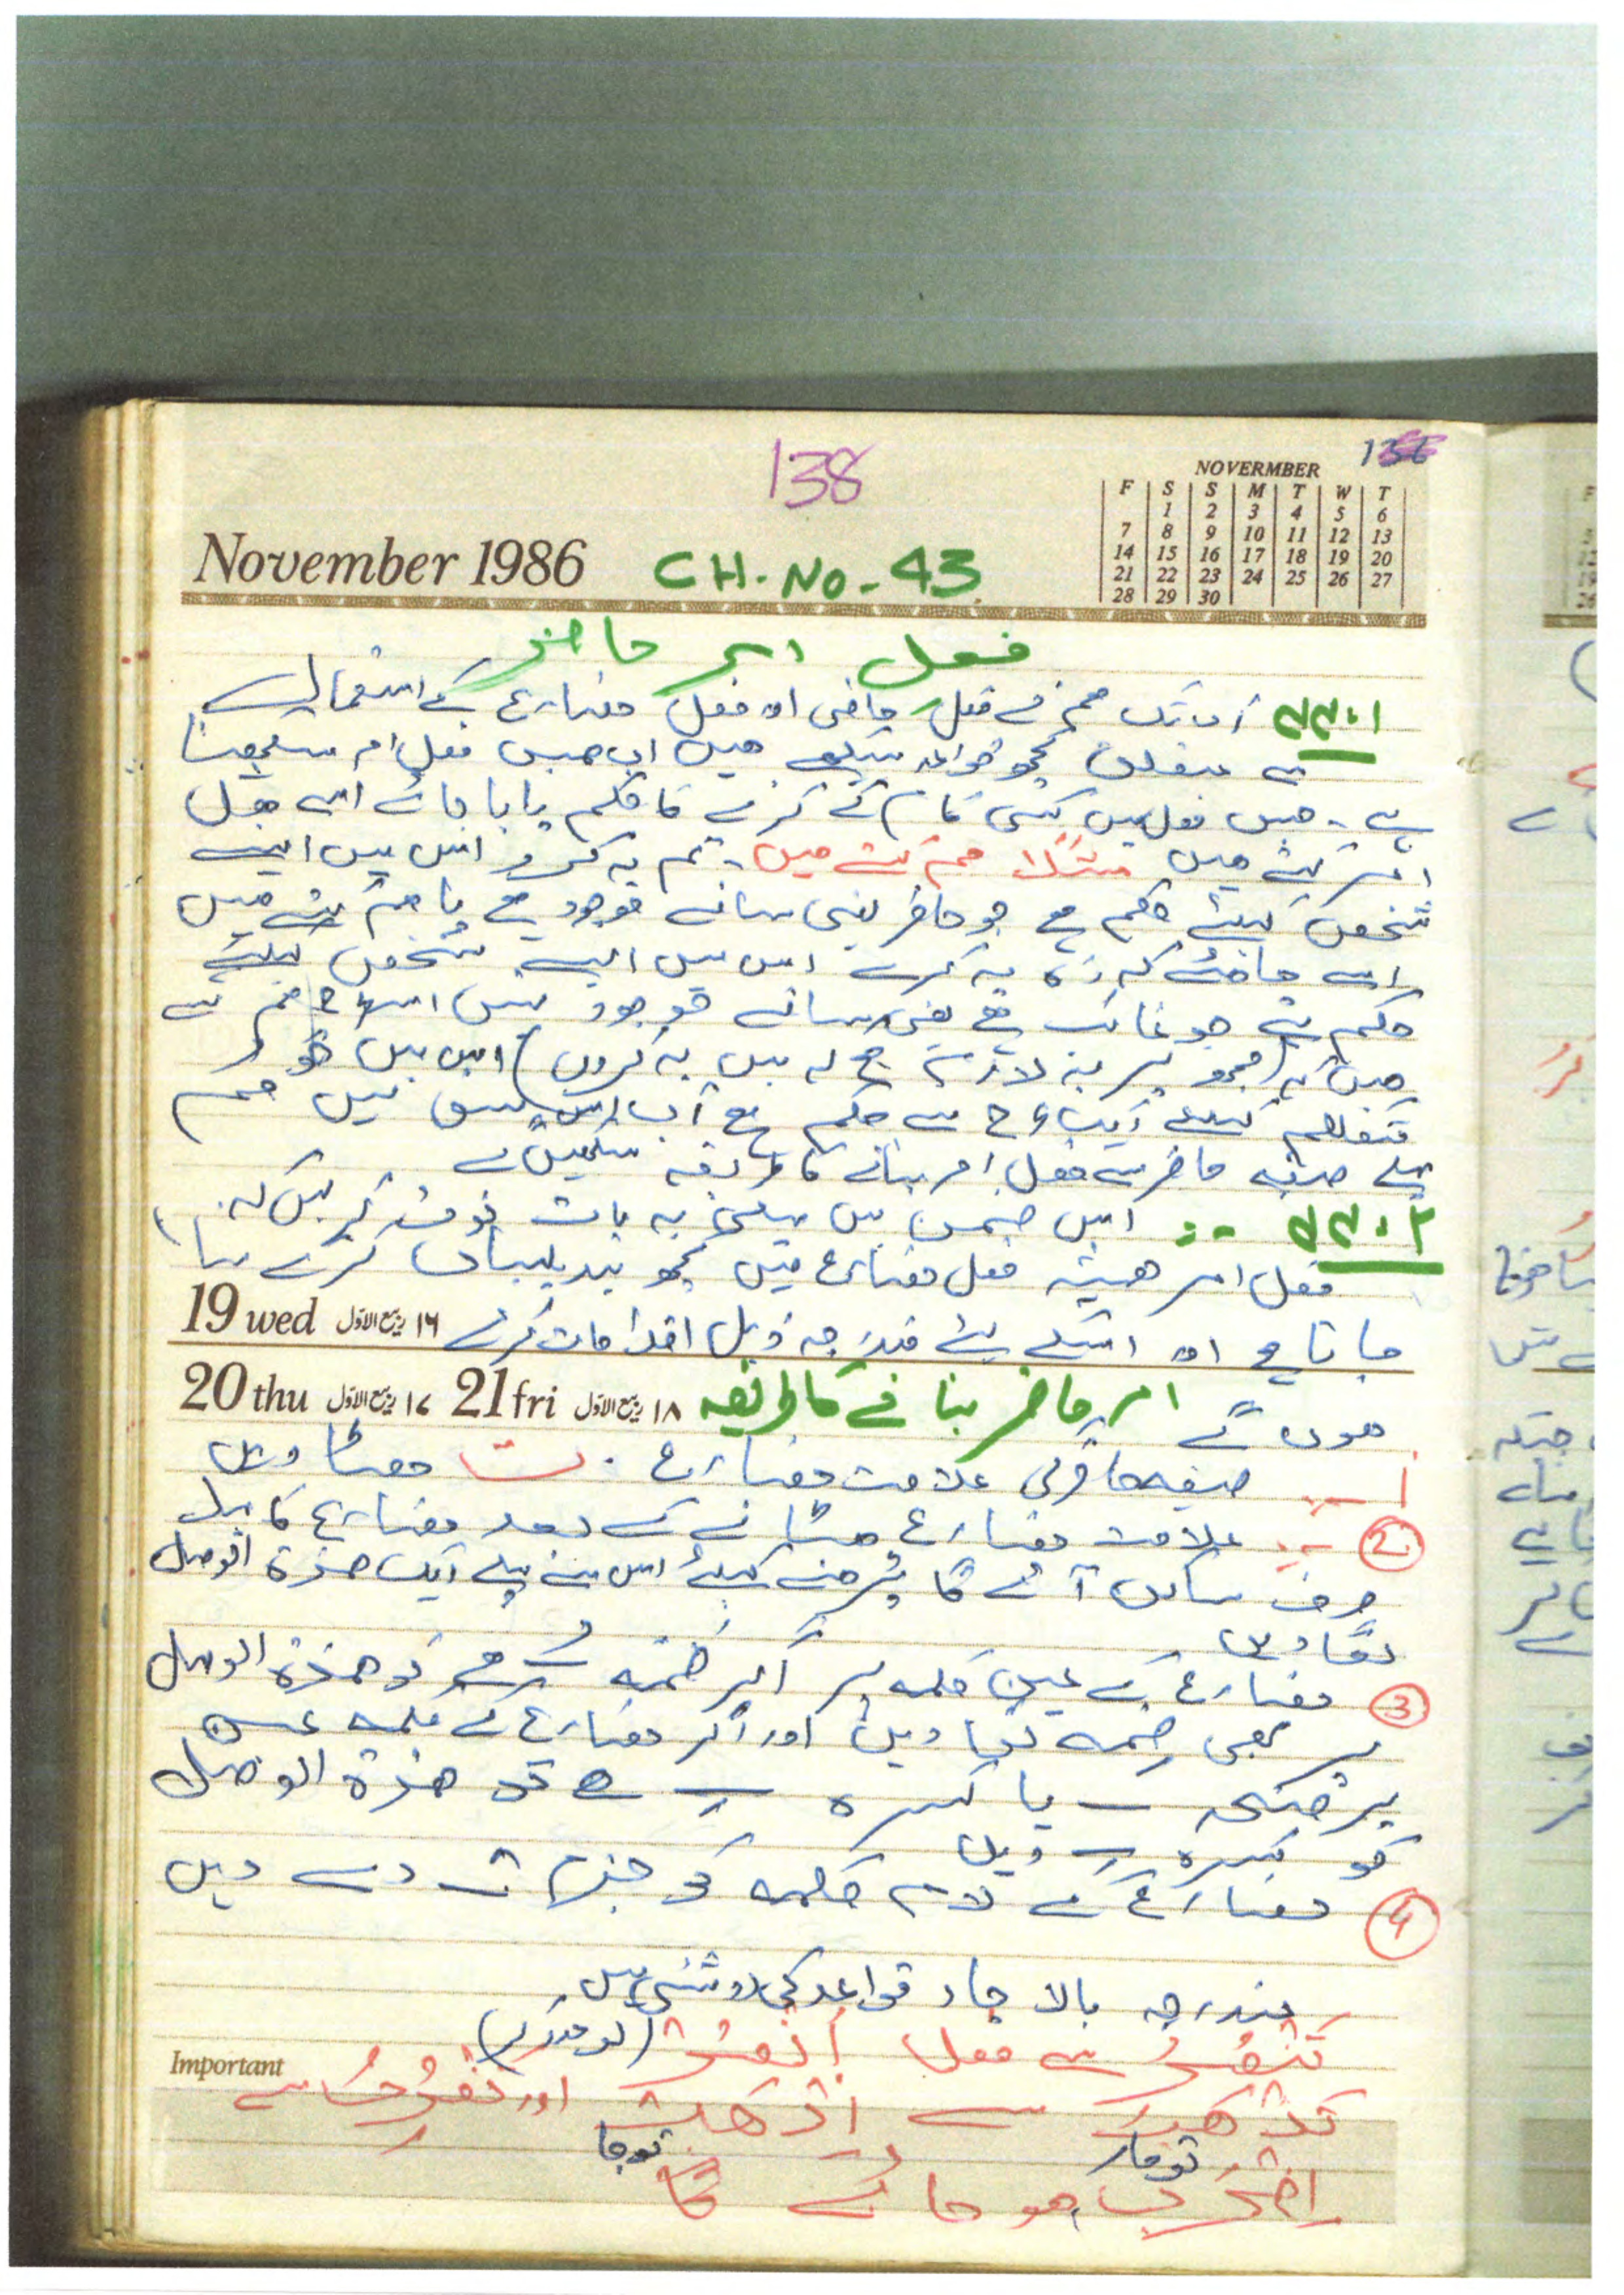 138
136
NOVERMBER
F S S M T W T
1 2 3 4 5 6
7 8 9 10 11 12 13
14 15 16 17 18 19 20
21 22 23 24 25 26 27
28 29 30
November 1986
CH. No - 43
فعل امر حاضر
۴۳:۱ اب تک ہم نے فعل ماضی اور فعل مضارع کے استعمال
کے کچھ قواعد سیکھے ہیں اب ہمیں فعل امر سیکھنا
ہے۔ جس فعل میں کسی کام کے کرنے کا حکم پایا جائے اسے فعل
امر کہتے ہیں مثلاً ہم کہتے ہیں۔ تم یہ کرو اس میں ایسے
شخص کیلئے حکم ہے جو حاضر یعنی سامنے موجود ہے یا ہم کہتے ہیں
اسے چاہئے کہ وہ یہ کرے اس میں ایسے شخص کیلئے
حکم ہے جو غائب ہے یعنی سامنے موجود نہیں اسی طرح ہم کہتے
ہیں کہ (مجھ پر یہ لازم ہے کہ میں یہ کروں) اس میں خود
متکلم کیلئے ایک طرح سے حکم ہے اب اس سبق میں ہم
پہلے صیغہ حاضر سے فعل امر بنانے کا طریقہ سیکھیں گے
۴۳:۲ :- اس ضمن میں پہلی یہ بات نوٹ کر لیں کہ
فعل امر ہمیشہ فعل مضارع میں کچھ تبدیلیاں کر کے بنایا
19 wed ۱۶ ربیع الاوّل جاتا ہے اور اسکے لئے مندرجہ ذیل اقدامات کرنے
20 thu ۱۷ ربیع الاوّل 21 fri ۱۸ ربیع الاوّل امر حاضر بنانے کا طریقہ
ہوں گے
1 صیغہ حاضر کی علامت مضارع ت ہٹا دیں
2 علامت مضارع ہٹانے کے بعد مضارع کا پہلا
حرف ساکن آئے گا پڑھنے کیلئے اس سے پہلے ایک ھمزۃ الوصل
لگا دیں
3 مضارع کے عین کلمہ پر اگر ضمہ ہے تو ھمزۃ الوصل
پر بھی ضمہ لگا دیں اور اگر مضارع کے کلمہ عین
پر فتحہ یا کسرہ ہے تو ھمزۃ الوصل
کو کسرہ دیں
4 مضارع کے لام کلمہ کو جزم دے دیں
مندرجہ بالا چار قواعد کی روشنی میں
تَنْصُرُ سے فعل اُنْصُرْ (تو مدد کر)
Important
تَذْهَبُ سے اِذْهَبْ اور تَضْرِبُ سے
تو جا
تو مار
اِضْرِبْ ہو جائے گا